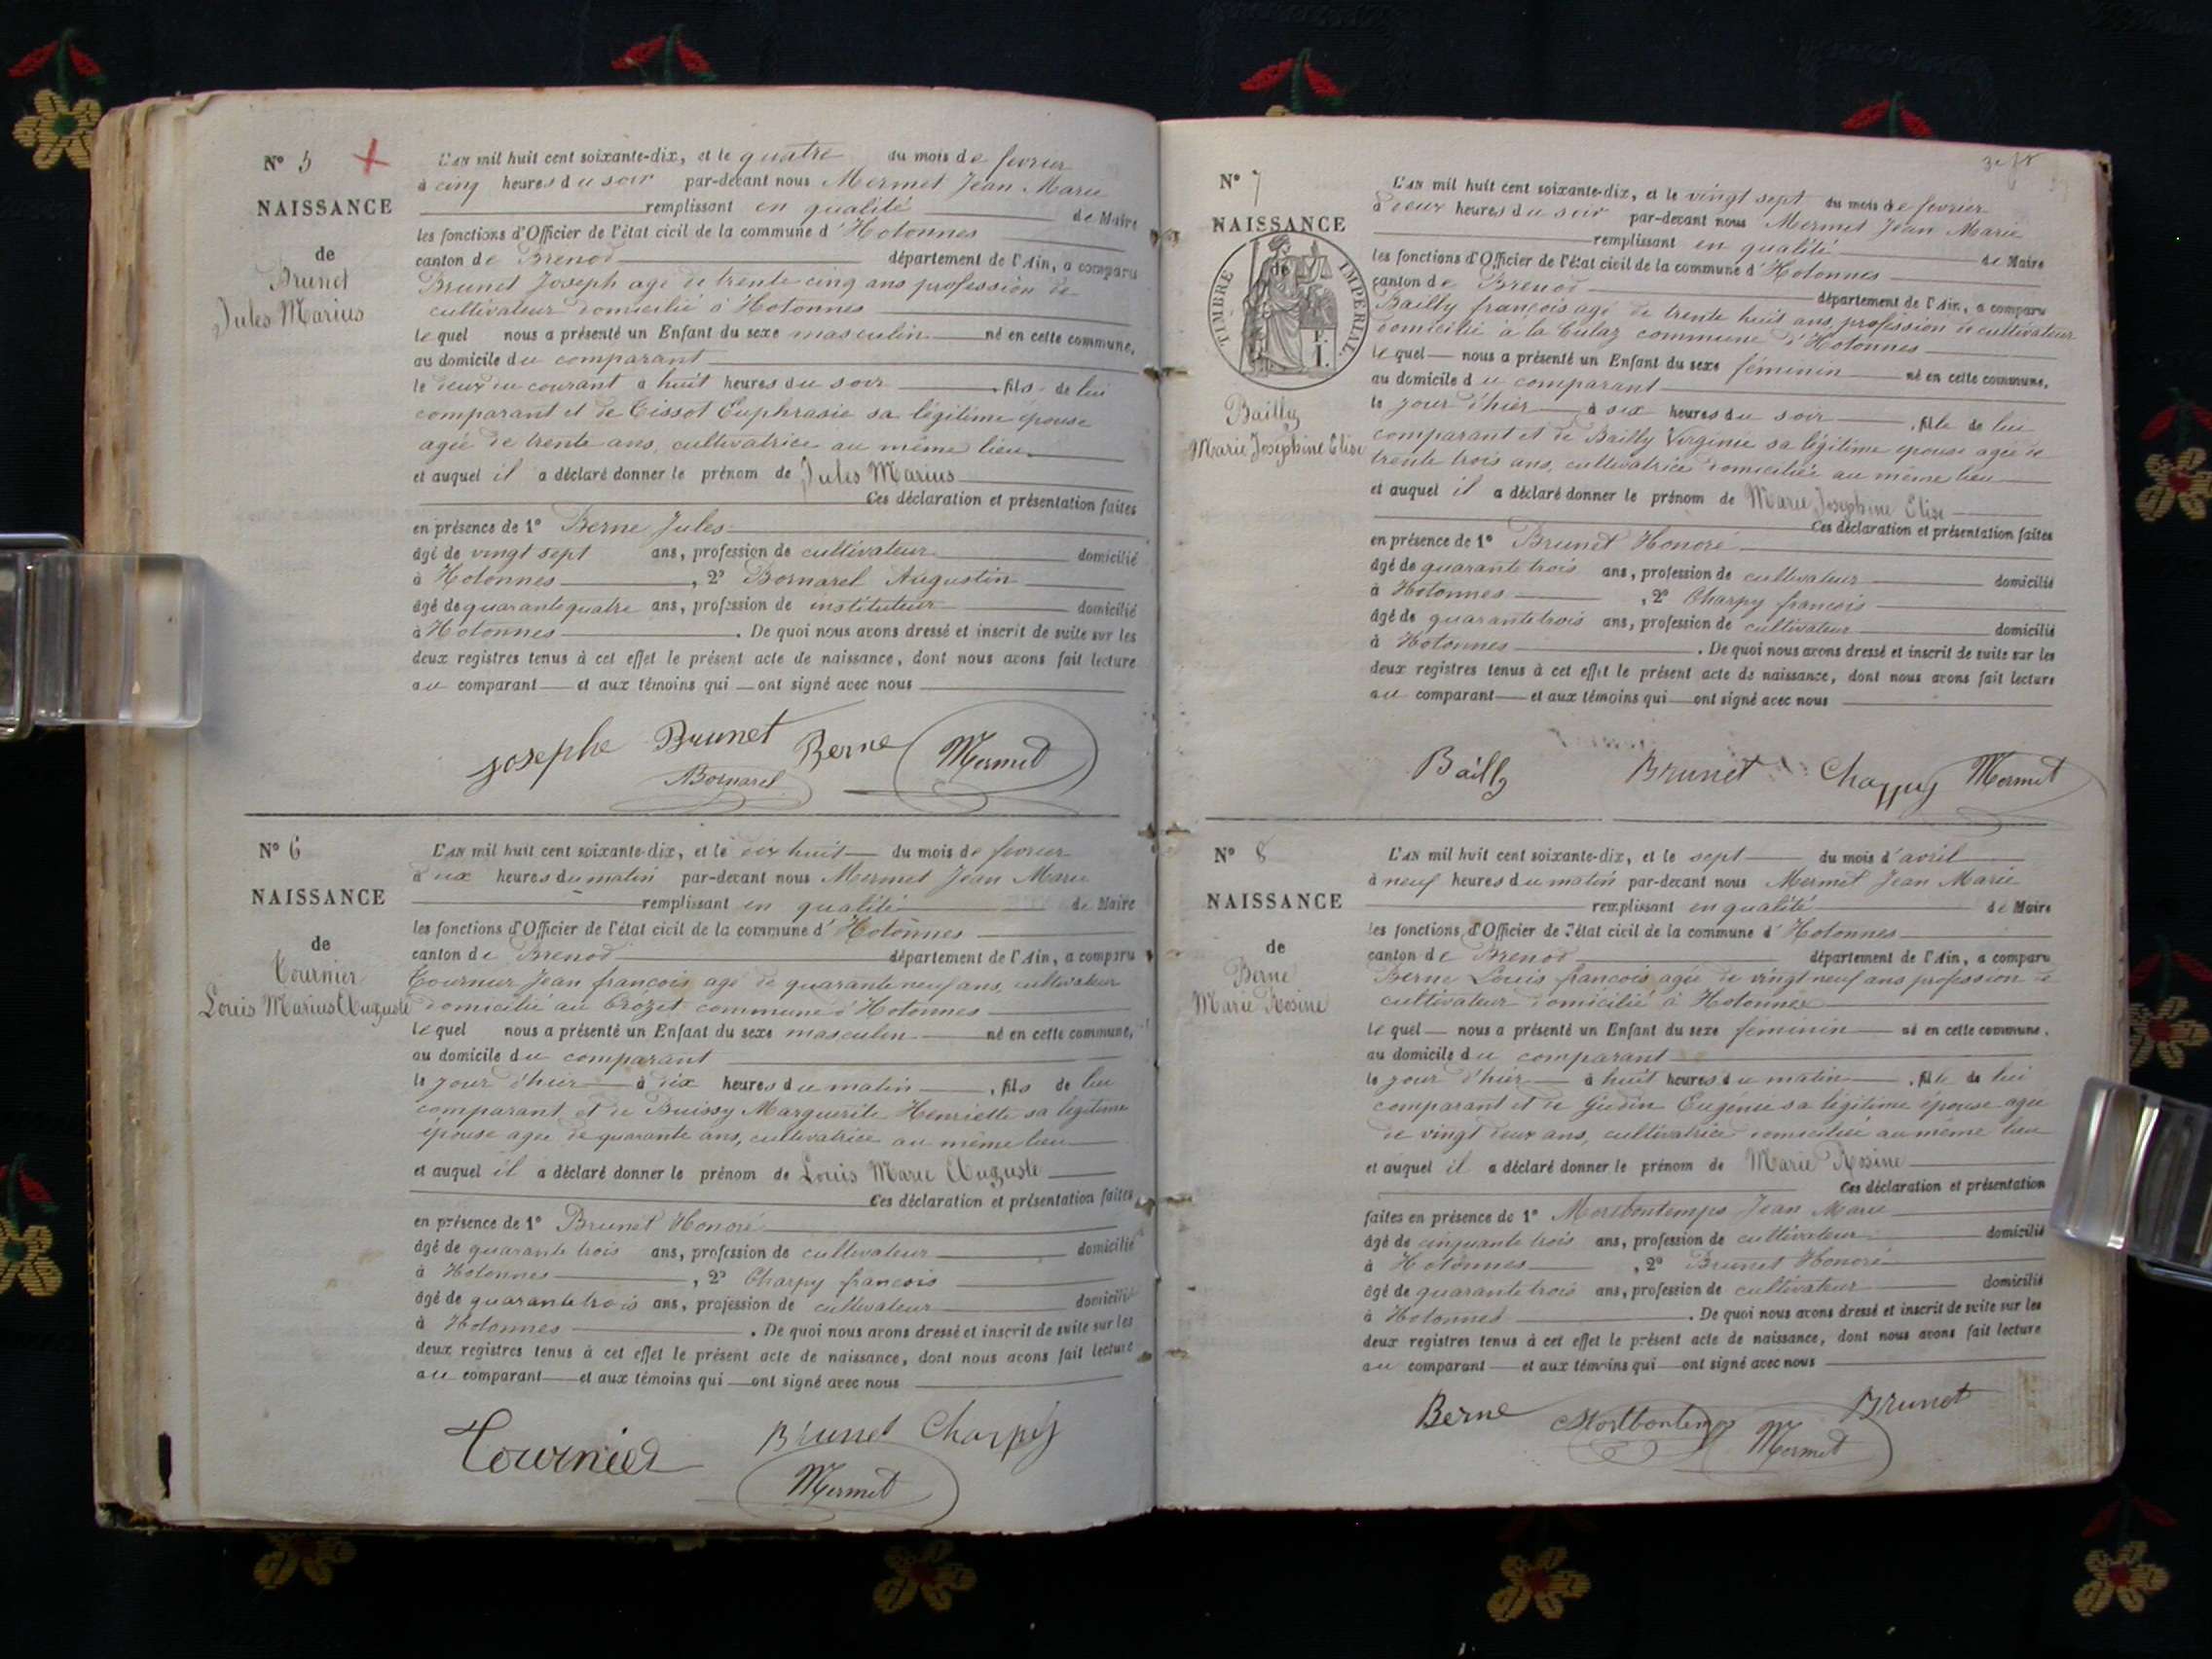 N° 5
NAISSANCE
de
Brunet
Jules Marius
L'AN mil huit cent soixante-dix, et le quatre du mois de fevrier
à cinq heures du soir par-devant nous Mermet Jean Marie
remplissant en qualité de Maire
les fonctions d'Officier de l'état civil de la commune d'Hotonnes
canton de Brenod département de l'Ain, a comparu
Brunet Joseph agé de trente cinq ans profession de
cultivateur domicilié à Hotonnes
lequel nous a présenté un Enfant du sexe masculin né en cette commune,
au domicile du comparant
le deux du courant à huit heures du soir , fils de lui
comparant et de Tissot Euphrasie sa légitime épouse
agée de trente ans, cultivatrice au même lieu
et auquel il a déclaré donner le prénom de Jules Marius
Ces déclaration et présentation faites
en présence de 1° Berne Jules
âgé de vingt sept ans, profession de cultivateur domicilié
à Hotonnes , 2° Bornarel Augustin
âgé de quarante quatre ans, profession de instituteur domicilié
à Hotonnes . De quoi nous avons dressé et inscrit de suite sur les
deux registres tenus à cet effet le présent acte de naissance, dont nous avons fait lecture
au comparant et aux témoins qui ont signé avec nous
josephe Brunet Berne Mermet
Bornarel
N° 6
NAISSANCE
de
Tournier
Louis Marius Auguste
L'AN mil huit cent soixante-dix, et le dix huit du mois de fevrier
à dix heures du matin par-devant nous Mermet Jean Marie
remplissant en qualité de Maire
les fonctions d'Officier de l'état civil de la commune d'Hotonnes
canton de Brenod département de l'Ain, a comparu
Tournier Jean françois agé de quarante neuf ans, cultivateur
domicilié au Crozet commune d'Hotonnes
lequel nous a présenté un Enfant du sexe masculin né en cette commune,
au domicile du comparant
le jour d'hier à dix heures du matin , fils de lui
comparant et de Buissy Marguerite Henriette sa légitime
épouse agée de quarante ans, cultivatrice au même lieu
et auquel il a déclaré donner le prénom de Louis Marie Auguste
Ces déclaration et présentation faites
en présence de 1° Brunet Honoré
âgé de quarante trois ans, profession de cultivateur domicilié
à Hotonnes , 2° Charpy françois
âgé de quarante trois ans, profession de cultivateur domicilié
à Hotonnes . De quoi nous avons dressé et inscrit de suite sur les
deux registres tenus à cet effet le présent acte de naissance, dont nous avons fait lecture
au comparant et aux témoins qui ont signé avec nous
Tournier Brunet Charpy
Mermet
N° 7
NAISSANCE
de
TIMBRE IMPERIAL
Bailly
Marie Josephine Elise
L'AN mil huit cent soixante-dix, et le vingt sept du mois de fevrier
à deux heures du soir par-devant nous Mermet Jean Marie
remplissant en qualité de Maire
les fonctions d'Officier de l'état civil de la commune d'Hotonnes
canton de Brenod département de l'Ain, a comparu
Bailly françois agé de trente huit ans, profession de cultivateur
domicilié à la Culaz commune d'Hotonnes
lequel nous a présenté un Enfant du sexe féminin né en cette commune,
au domicile du comparant
le jour d'hier à six heures du soir , fille de lui
comparant et de Bailly Virginie sa légitime épouse agée de
trente trois ans, cultivatrice domiciliée au même lieu
et auquel il a déclaré donner le prénom de Marie Josephine Elise
Ces déclaration et présentation faites
en présence de 1° Brunet Honoré
âgé de quarante trois ans, profession de cultivateur domicilié
à Hotonnes , 2° Charpy françois
âgé de quarante trois ans, profession de cultivateur domicilié
à Hotonnes . De quoi nous avons dressé et inscrit de suite sur les
deux registres tenus à cet effet le présent acte de naissance, dont nous avons fait lecture
au comparant et aux témoins qui ont signé avec nous
Bailly Brunet Charpy Mermet
N° 8
NAISSANCE
de
Berne
Marie Rosine
L'AN mil huit cent soixante-dix, et le sept du mois d'avril
à neuf heures du matin par-devant nous Mermet Jean Marie
remplissant en qualité de Maire
les fonctions d'Officier de l'état civil de la commune d'Hotonnes
canton de Brenod département de l'Ain, a comparu
Berne Louis françois agée de vingt neuf ans profession de
cultivateur domicilié à Hotonnes
lequel nous a présenté un Enfant du sexe féminin né en cette commune,
au domicile du comparant
le jour d'hier à huit heures du matin , fille de lui
comparant et de Gudin Eugénie sa légitime épouse agée
de vingt deux ans, cultivatrice domiciliée au même lieu
et auquel il a déclaré donner le prénom de Marie Rosine
Ces déclaration et présentation
faites en présence de 1° Mortbontemps Jean Marie
âgé de cinquante trois ans, profession de cultivateur domicilié
à Hotonnes , 2° Brunet Honoré
âgé de quarante trois ans, profession de cultivateur domicilié
à Hotonnes . De quoi nous avons dressé et inscrit de suite sur les
deux registres tenus à cet effet le présent acte de naissance, dont nous avons fait lecture
au comparant et aux témoins qui ont signé avec nous
Berne Mortbontemps Mermet Brunet